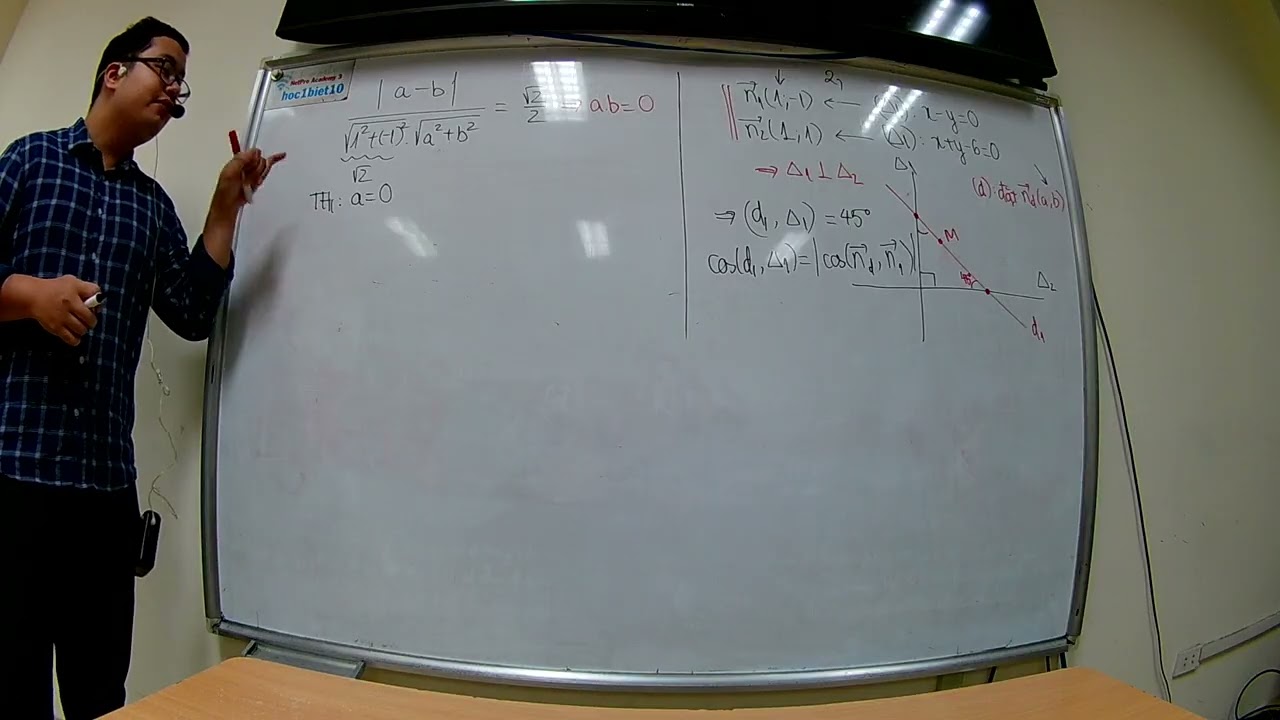 NetPro Academy 3
hoc1biet10
|a-b| / √1²+(-1)² . √a²+b² = √2/2 ⇒ ab=0
√2
TH₁: a=0
n₁(1,-1) ← : x-y=0
n₂(1,1) ← (Δ₁): x+y-6=0
⇒ Δ₁ ⊥ Δ₂
⇒ (d₁, Δ₁) = 45°
cos(d₁, Δ₁) = |cos(n_d, n₁)|
n_d(a,b)
Δ₁
M
Δ₂
d₁